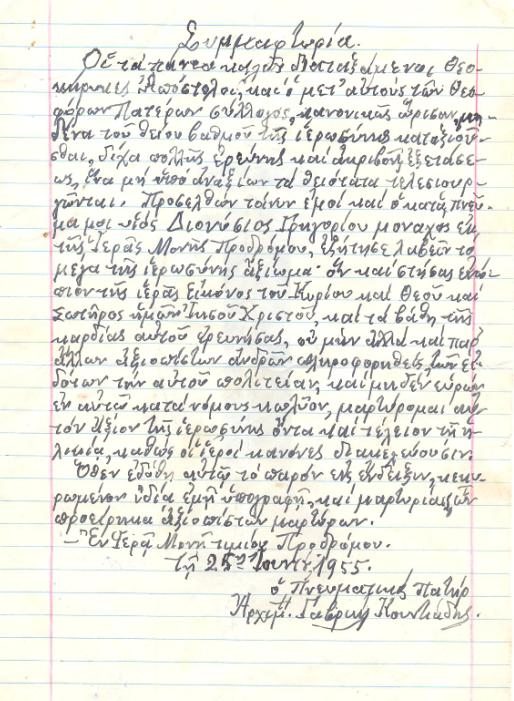 Συμμαρτυρία.
Οἱ τὰ πάντα καλῶς διαταξάμενοι Θεο-
κήρυκες Ἀπόστολοι, καὶ ὁ μετ' αὐτοὺς τῶν Θεο-
φόρων Πατέρων σύλλογος, κανονικῶς ὥρισαν μη-
δένα τοῦ θείου βαθμοῦ τῆς ἱερωσύνης καταξιοῦ-
σθαι, δίχα πολλῆς ἐρεύνης καὶ ἀκριβοῦς ἐξετάσε-
ως, ἵνα μὴ ὑπὸ ἀναξίων τὰ θειότατα τελεσιουρ-
γῶνται. Προσελθὼν τοίνυν ἐμοὶ καὶ ὁ κατὰ πνεῦ-
μα μοι υἱὸς Διονύσιος Γρηγορίου μοναχὸς ἐκ
τῆς Ἱερᾶς Μονῆς Προδρόμου, ἐζήτησε λαβεῖν τὸ
μέγα τῆς ἱερωσύνης ἀξίωμα· ὃν καὶ στήσας ἐνώ-
πιον τῆς ἱερᾶς εἰκόνος τοῦ Κυρίου καὶ Θεοῦ καὶ
Σωτῆρος ἡμῶν Ἰησοῦ Χριστοῦ, καὶ τὰ βάθη τῆς
καρδίας αὐτοῦ ἐρευνήσας, οὐ μὴν ἀλλὰ καὶ παρ'
ἄλλων ἀξιοπίστων ἀνδρῶν πληροφορηθεὶς, τῶν εἰ-
δότων τὴν αὐτοῦ πολιτείαν, καὶ μηδὲν εὑρὼν
ἐν αὐτῷ κατὰ νόμους κωλῦον, μαρτύρομαι αὐ-
τὸν ἄξιον τῆς ἱερωσύνης ὄντα καὶ τέλειον τῇ ἡ-
λικίᾳ, καθὼς οἱ ἱεροὶ κανόνες διακελεύουσιν.
Ὅθεν ἐδόθη αὐτῷ τὸ παρὸν εἰς ἔνδειξιν, κεκυ-
ρωμένον ἰδίᾳ ἐμῇ ὑπογραφῇ, καὶ μαρτυρίαις τῶν
προείρηκα ἀξιοπίστων μαρτύρων.
– Ἐν Ἱερᾷ Μονῇ τιμίου Προδρόμου.
τῇ 25ῃ 1955.
ὁ Πνευματικὸς Πατὴρ
Ἀρχιμ. Γαβριὴλ